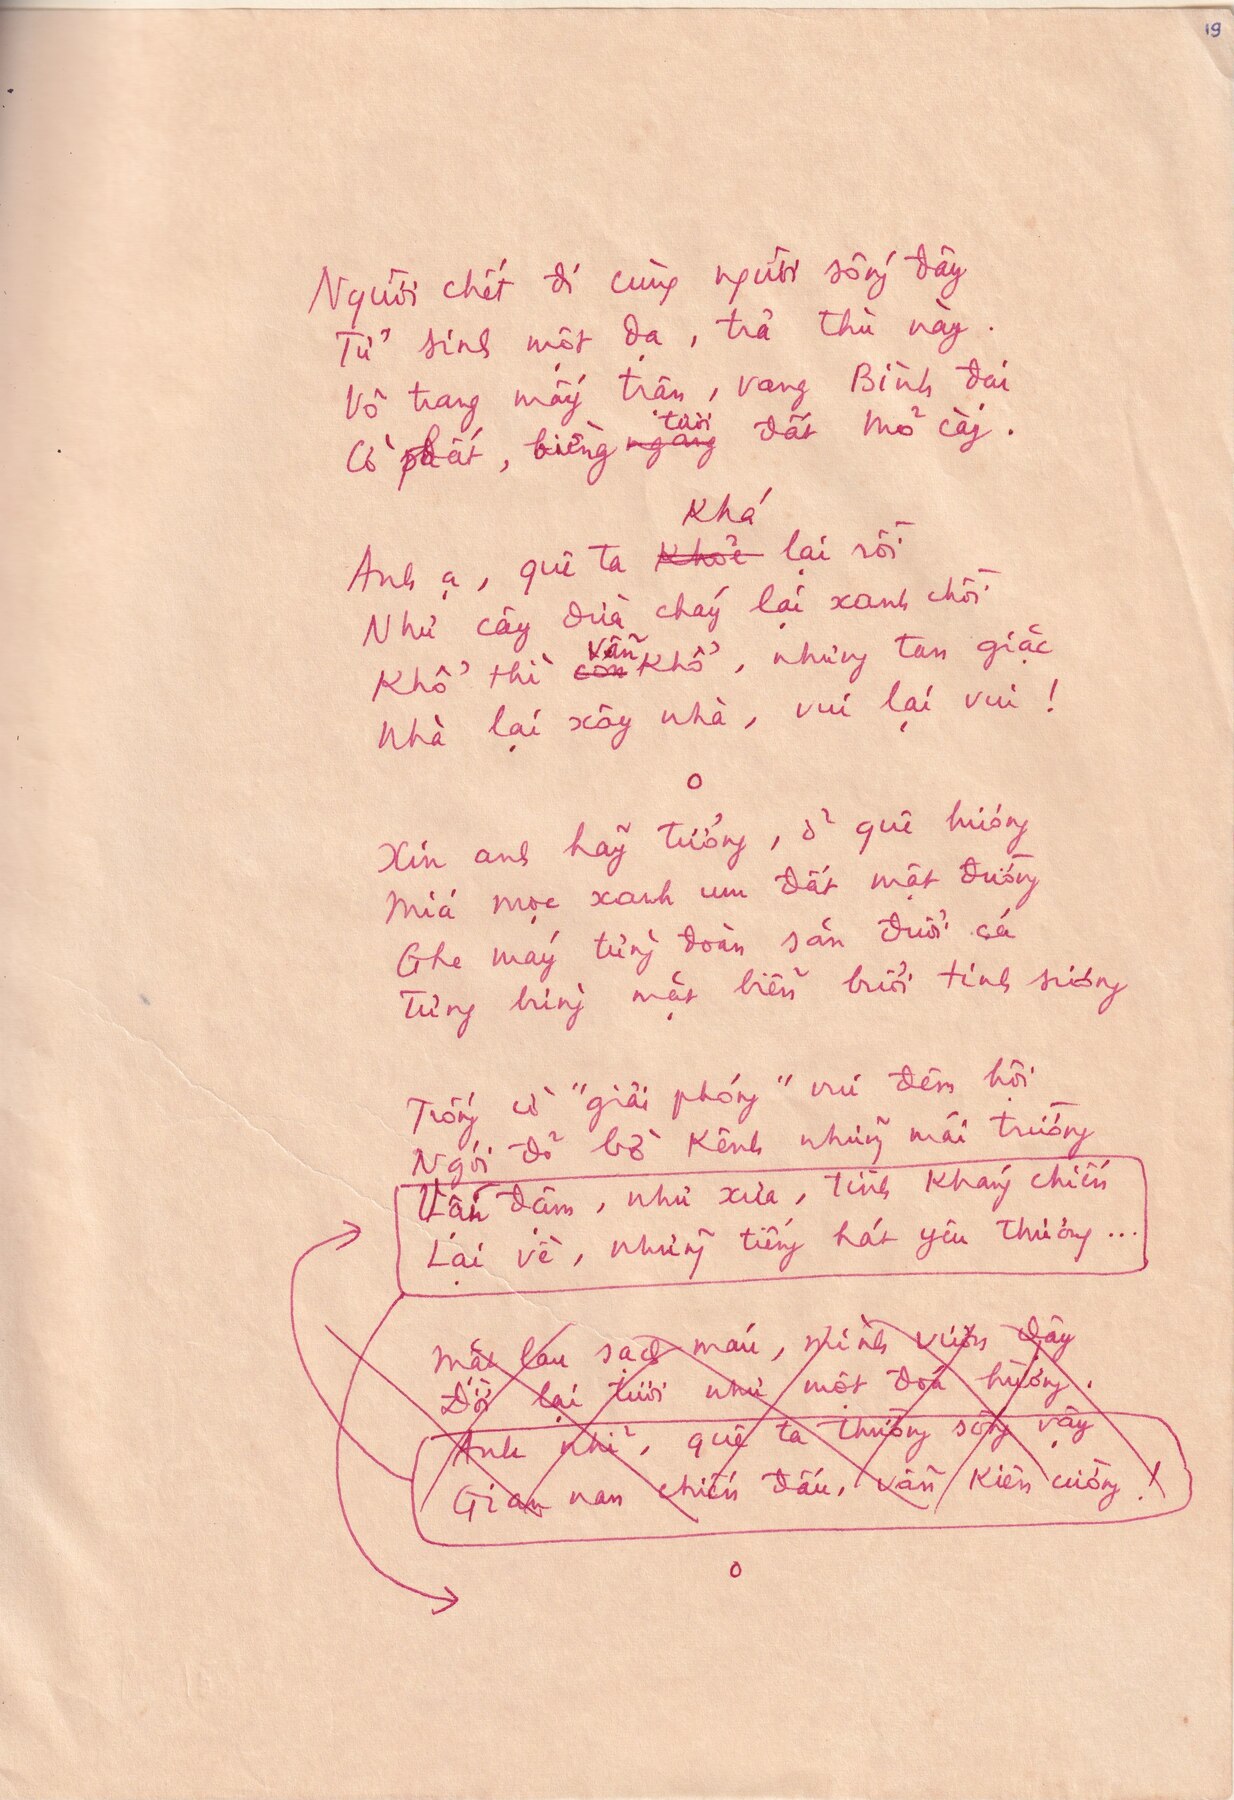 19
Người chết đi cùng người sống đây
Tử sinh một dạ, trả thù này.
Võ trang mấy trận, vang Bình đại
Cờ phất, biển ngang đất Mỏ cày.
tươi
Khá
Anh ạ, quê ta Khỏe lại rồi
Như cây dừa cháy lại xanh chồi
vẫn
Khổ thì còn Khổ, nhưng tan giặc
Nhà lại xây nhà, vui lại vui !
o
Xin anh hãy tưởng, ở quê hương
Mía mọc xanh um đất mật đường
Ghe máy từng đoàn săn đuổi cá
Từng bừng mặt biển buổi tinh sương
Trống cờ "giải phóng" vui đêm hội
Ngói đỏ bờ Kênh những mái trường
Vẫn đậm, như xưa, tình Kháng chiến
Lại về, những tiếng hát yêu thương...
Mặt lau sạch máu, mình vươn dậy
Đời lại tươi như một đoá hường.
Anh nhỉ, quê ta thường sống vậy
Gian nan chiến đấu, vẫn Kiên cường !
o